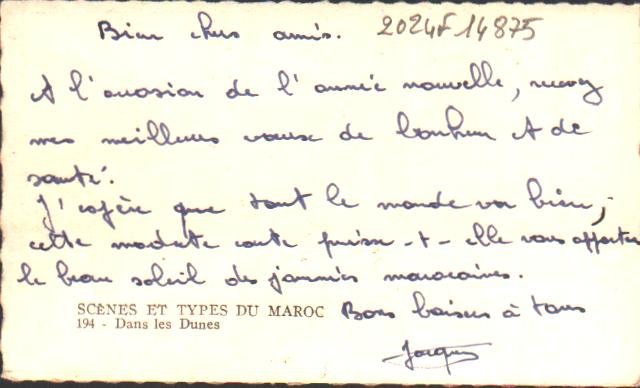 Bien chers amis. 2024F14875
A l'occasion de l'année nouvelle, recevez
mes meilleurs voeux de bonheur et de
santé.
J'espère que tout le monde va bien ;
cette modeste carte puisse-t-elle vous apporter
le beau soleil des journées marocaines.
SCÈNES ET TYPES DU MAROC Bons baisers à tous
194 - Dans les Dunes
Jacques